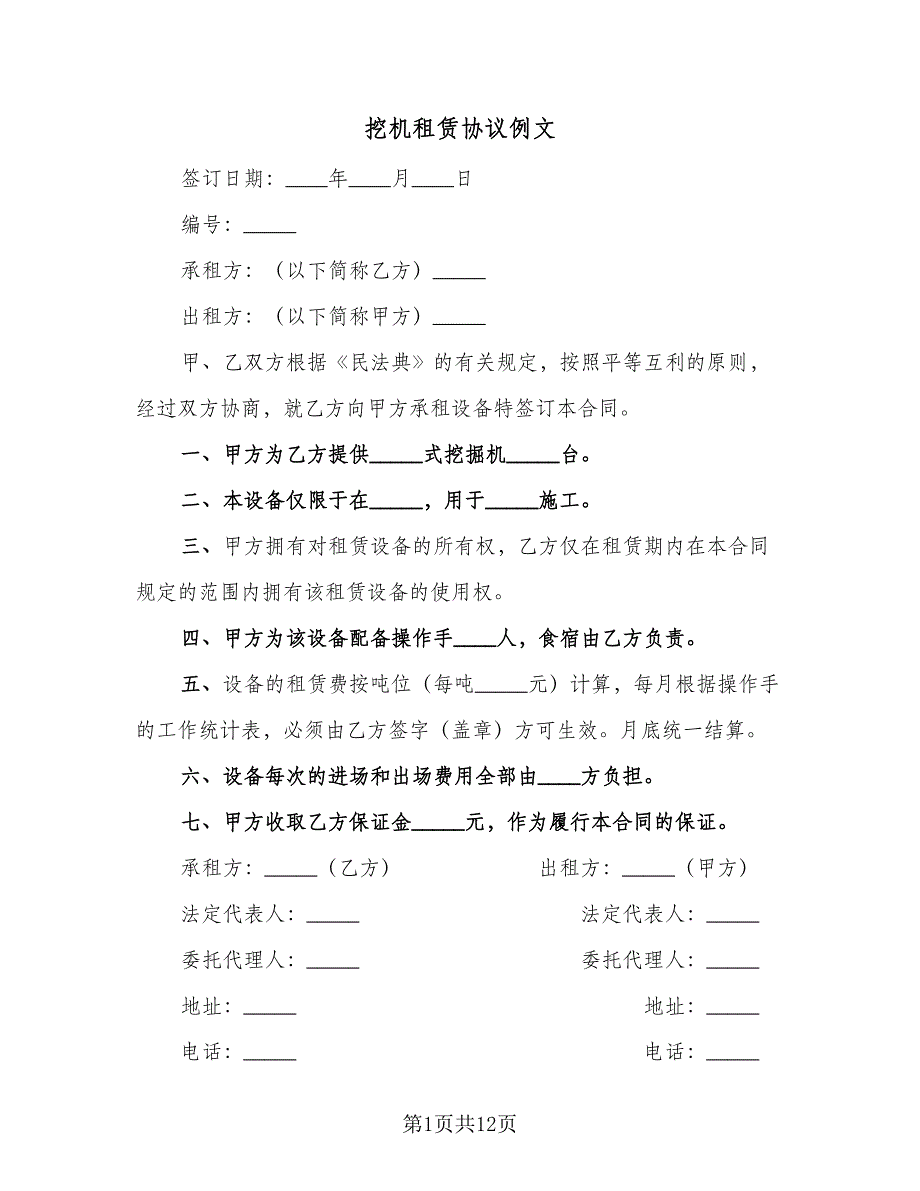 挖机租赁协议例文
签订日期：____年____月____日
编号：_____
承租方：（以下简称乙方）_____
出租方：（以下简称甲方）_____
甲、乙双方根据《民法典》的有关规定，按照平等互利的原则，
经过双方协商，就乙方向甲方承租设备特签订本合同。
一、甲方为乙方提供_____式挖掘机_____台。
二、本设备仅限于在_____，用于_____施工。
三、甲方拥有对租赁设备的所有权，乙方仅在租赁期内在本合同
规定的范围内拥有该租赁设备的使用权。
四、甲方为该设备配备操作手____人，食宿由乙方负责。
五、设备的租赁费按吨位（每吨_____元）计算，每月根据操作手
的工作统计表，必须由乙方签字（盖章）方可生效。月底统一结算。
六、设备每次的进场和出场费用全部由____方负担。
七、甲方收取乙方保证金_____元，作为履行本合同的保证。
承租方：_____（乙方） 出租方：_____（甲方）
法定代表人：_____ 法定代表人：_____
委托代理人：_____ 委托代理人：_____
地址：_____ 地址：_____
电话：_____ 电话：_____
第1页共12页